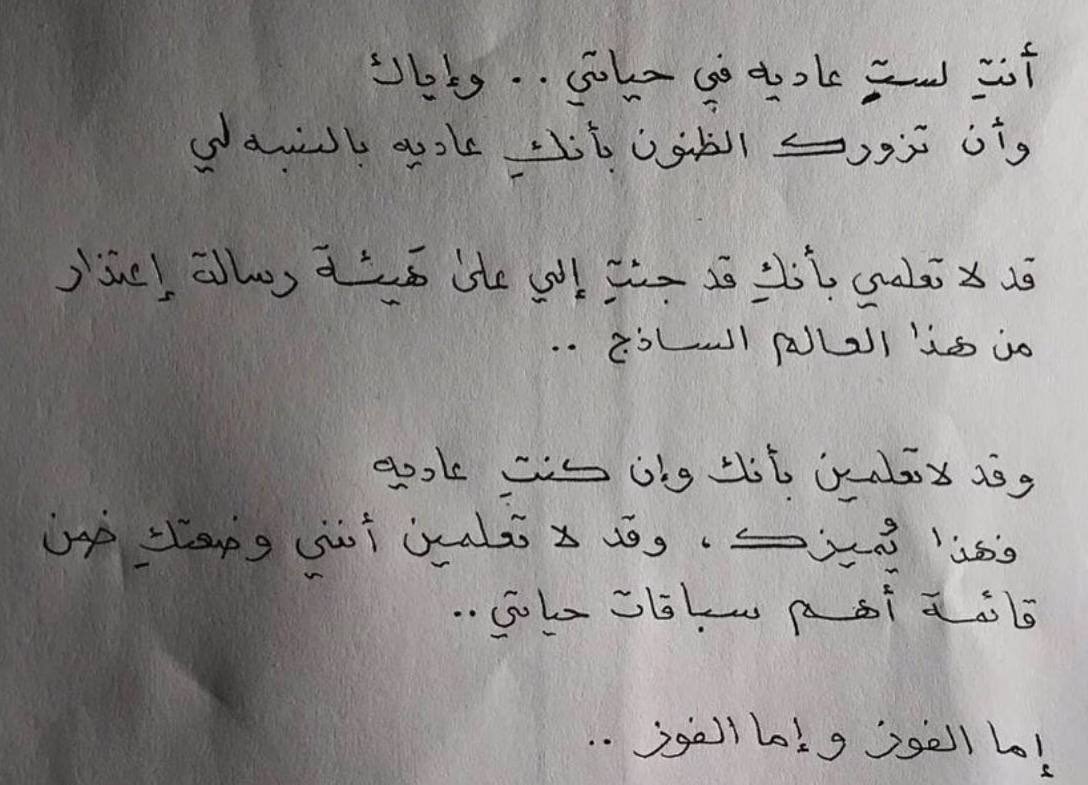 أنتِ لستِ عاديه في حياتي .. وإياك
وأن تزورك الظنون بأنكِ عاديه بالنسبه لي
قد لا تعلمي بأنكِ قد جئتِ إلي على هَيئة رسالة إعتذار
من هذا العالم الساذج ..
وقد لاتعلمين بأنك وإن كنتِ عاديه
فهذا يُميزك ، وقد لا تعلمين أنني وضعتكِ ضمن
قائمة أهم سباقات حياتي ..
إما الفوز وإما الفوز ..